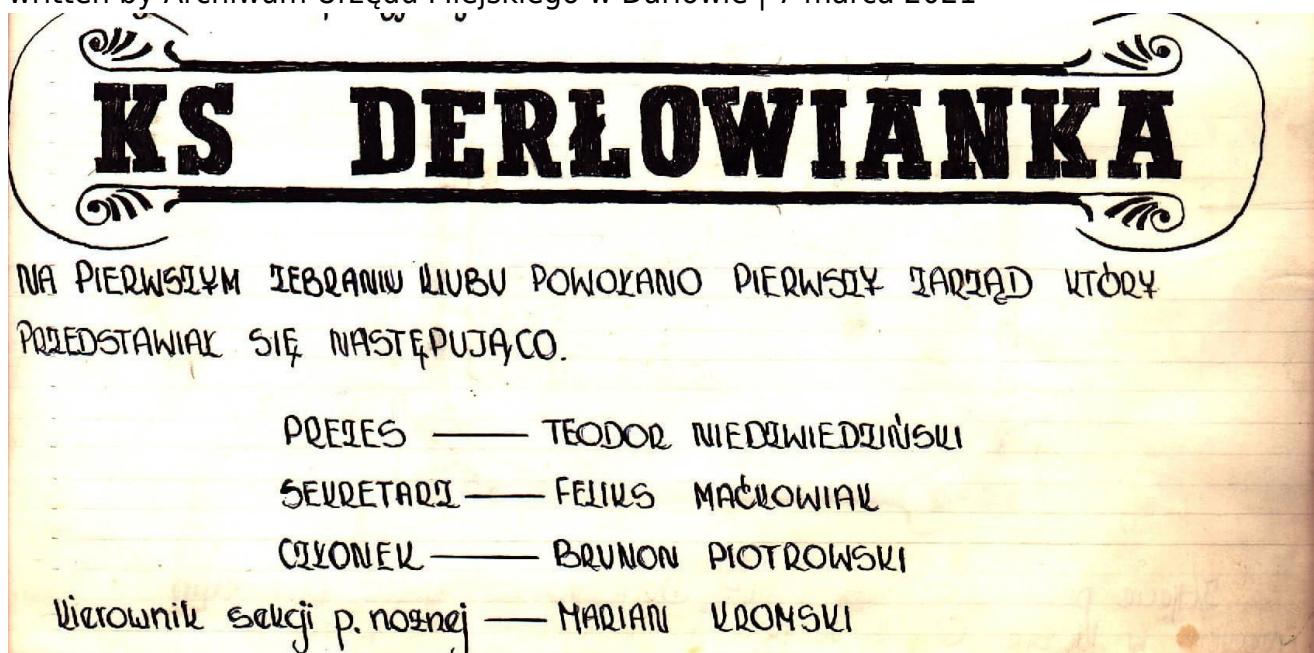 written by Archiwum Urzędu Miejskiego w Darłowie | 7 marca 2021
KS DERŁOWIANKA
NA PIERWSZYM ZEBRANIU KLUBU POWOŁANO PIERWSZY ZARZĄD KTÓRY
PRZEDSTAWIAŁ SIĘ NASTĘPUJĄCO.
PREZES — TEODOR NIEDZWIEDZIŃSKI
SEKRETARZ — FELIKS MAĆKOWIAK
CZŁONEK — BRUNON PIOTROWSKI
Kierownik sekcji p. nożnej — MARIAN KROMSKI